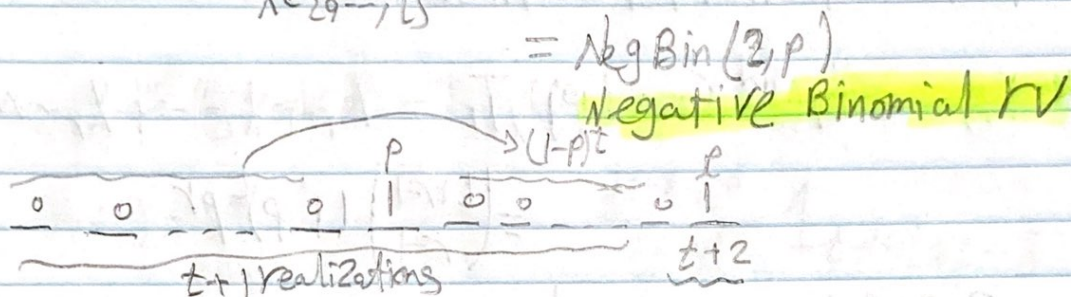 = NegBin(2,p)
Negative Binomial rv
p →(1-p)^t p
0 0 --- 0 1 0 0 --- 0 1
t+1 realizations t+2